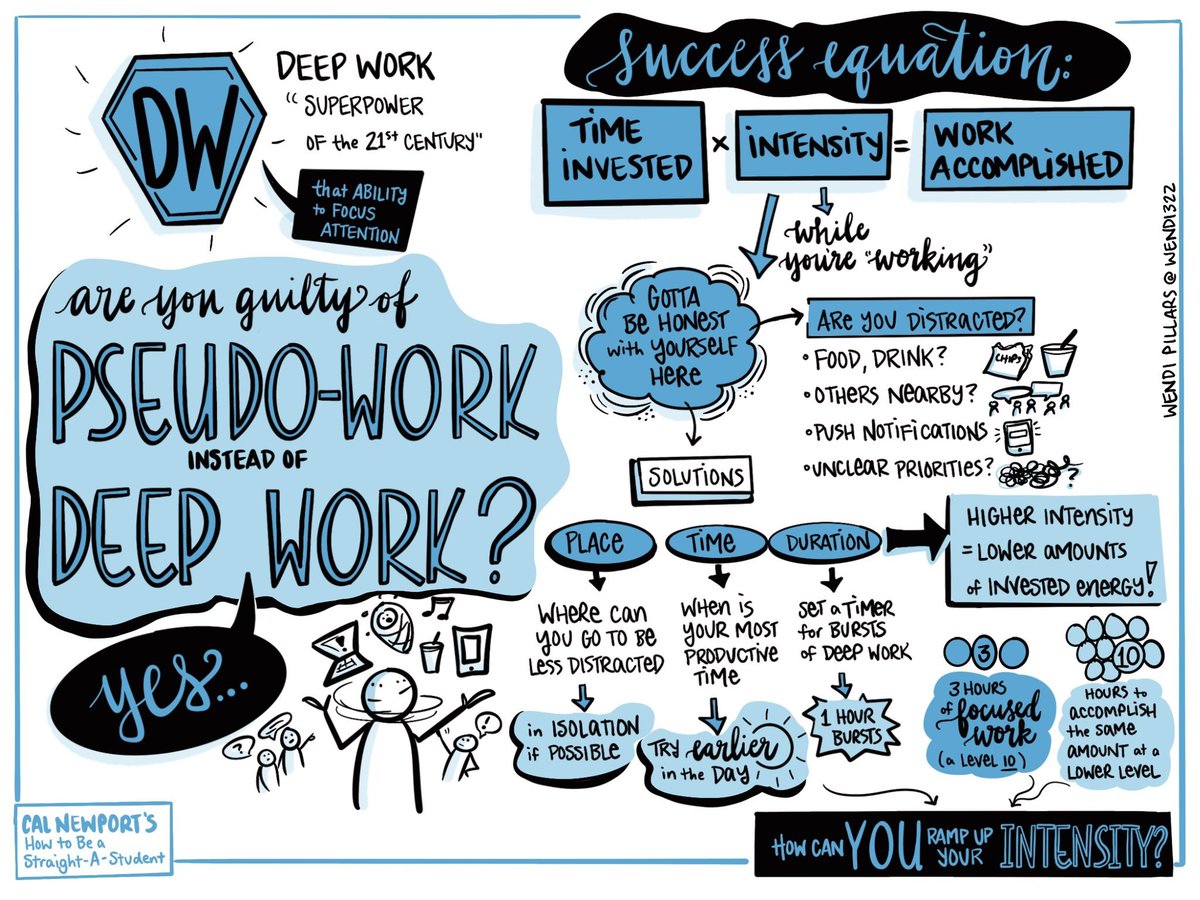 DW
DEEP WORK
"SUPERPOWER
OF the 21ST CENTURY"
that ABILITY
to FOCUS
ATTENTION
are you guilty of
PSEUDO-WORK
INSTEAD OF
DEEP WORK?
yes...
?
!
CAL NEWPORT'S
How to Be a
Straight-A-Student
success equation:
TIME
INVESTED
×
INTENSITY
=
WORK
ACCOMPLISHED
while
you're "working"
GOTTA
BE HONEST
with YOURSELF
HERE
ARE YOU DISTRACTED?
• FOOD, DRINK?
CHIPS
• OTHERS NEARBY?
• PUSH NOTIFICATIONS
• UNCLEAR PRIORITIES?
?
SOLUTIONS
PLACE
WHERE CAN
YOU GO TO BE
LESS DISTRACTED
in ISOLATION
if POSSIBLE
TIME
WHEN IS
YOUR MOST
PRODUCTIVE
TIME
TRY earlier
in the DAY
DURATION
SET A TIMER
for BURSTS
of DEEP WORK
1 HOUR
BURSTS
HIGHER INTENSITY
= LOWER AMOUNTS
of INVESTED ENERGY!
3
3 HOURS
of focused
work
(a LEVEL 10)
10
HOURS to
ACCOMPLISH
the SAME
AMOUNT at a
LOWER LEVEL
HOW CAN YOU RAMP UP YOUR INTENSITY?
WENDI PILLARS @ WENDI322